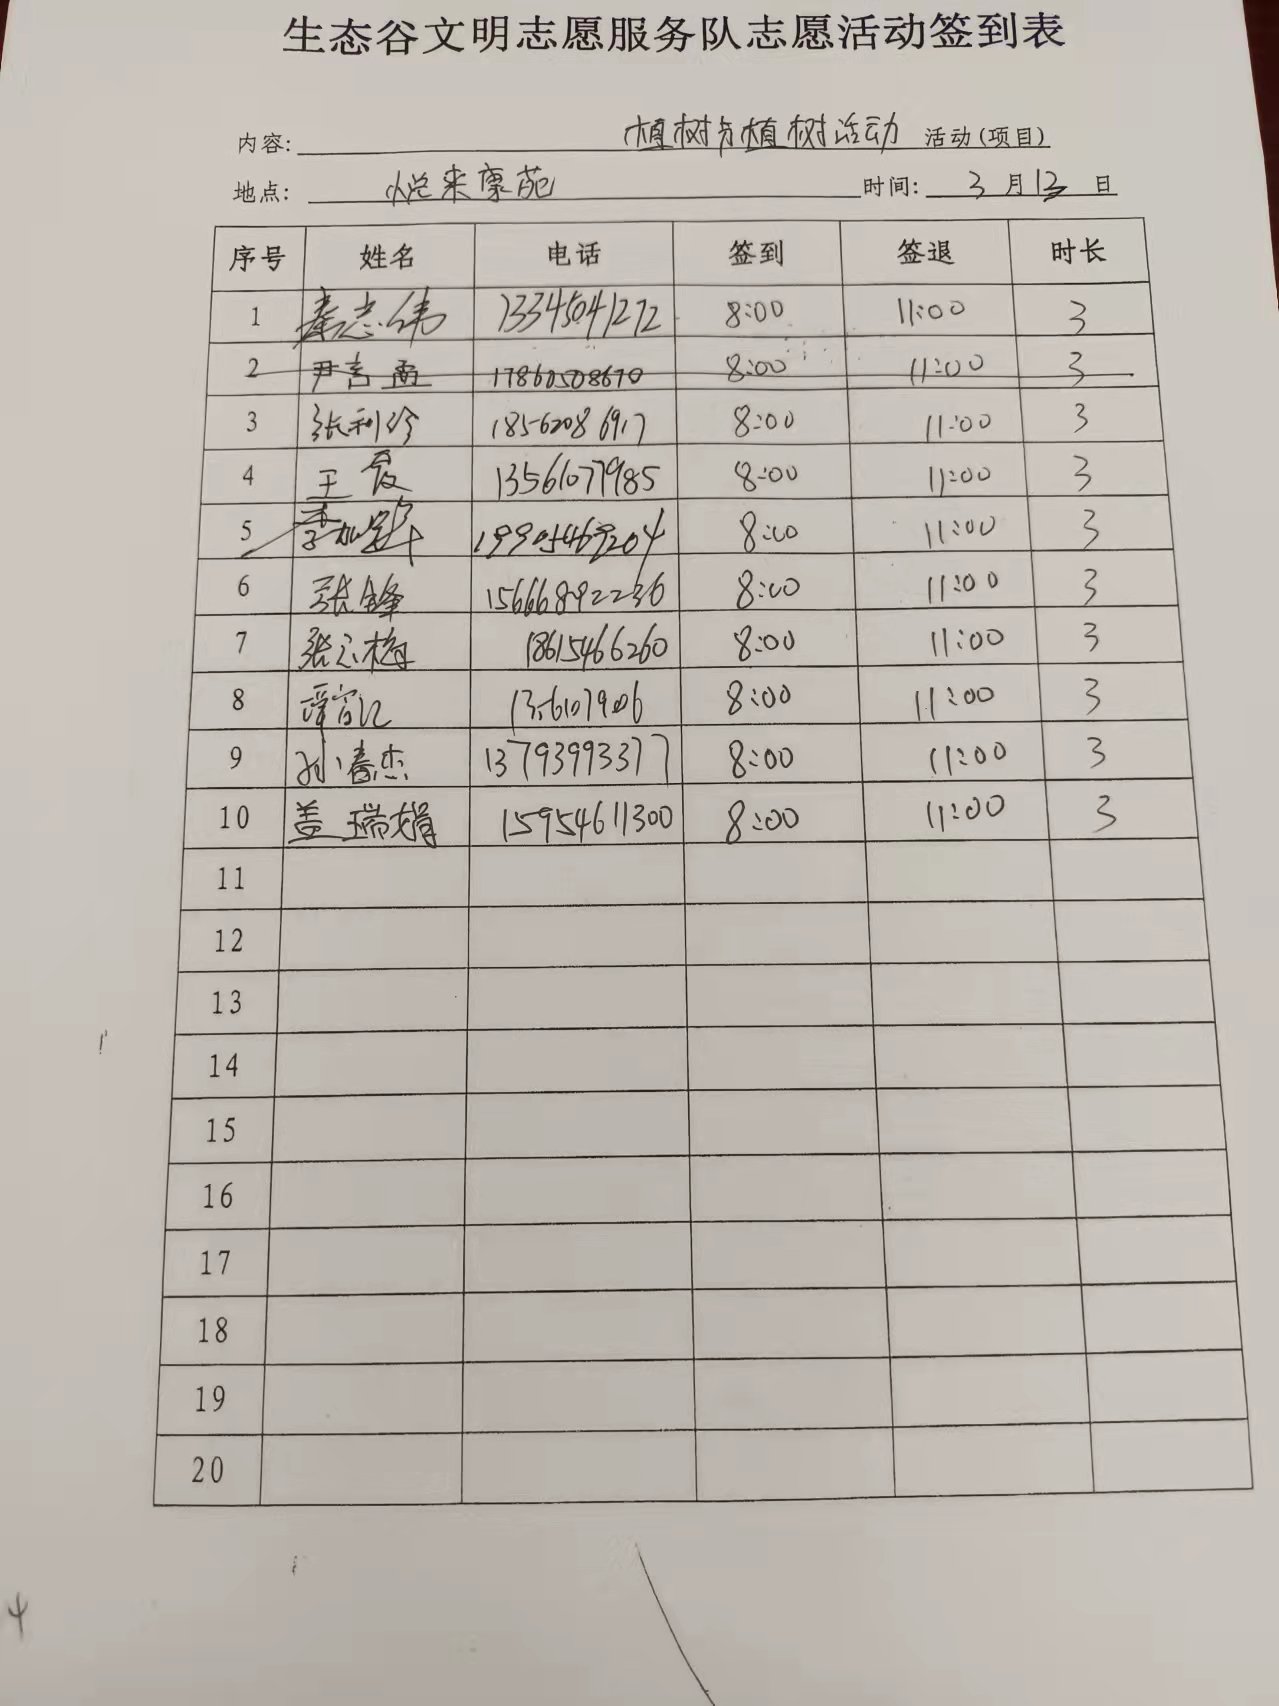 生态谷文明志愿服务队志愿活动签到表
内容: 植树节植树活动 活动(项目)
地点: 悦来康苑 时间: 3 月 12 日
序号 姓名 电话 签到 签退 时长
1 秦志伟 13345041272 8:00 11:00 3
2 17860508670 8:00 11:00 3
3 张利珍 18562086917 8:00 11:00 3
4 王霞 13561077985 8:00 11:00 3
5 8:00 11:00 3
6 张金锋 15666892236 8:00 11:00 3
7 张志梅 18615466260 8:00 11:00 3
8 8:00 11:00 3
9 孙春杰 13793993377 8:00 11:00 3
10 盖瑞娟 15954611300 8:00 11:00 3
11
12
13
14
15
16
17
18
19
20
4